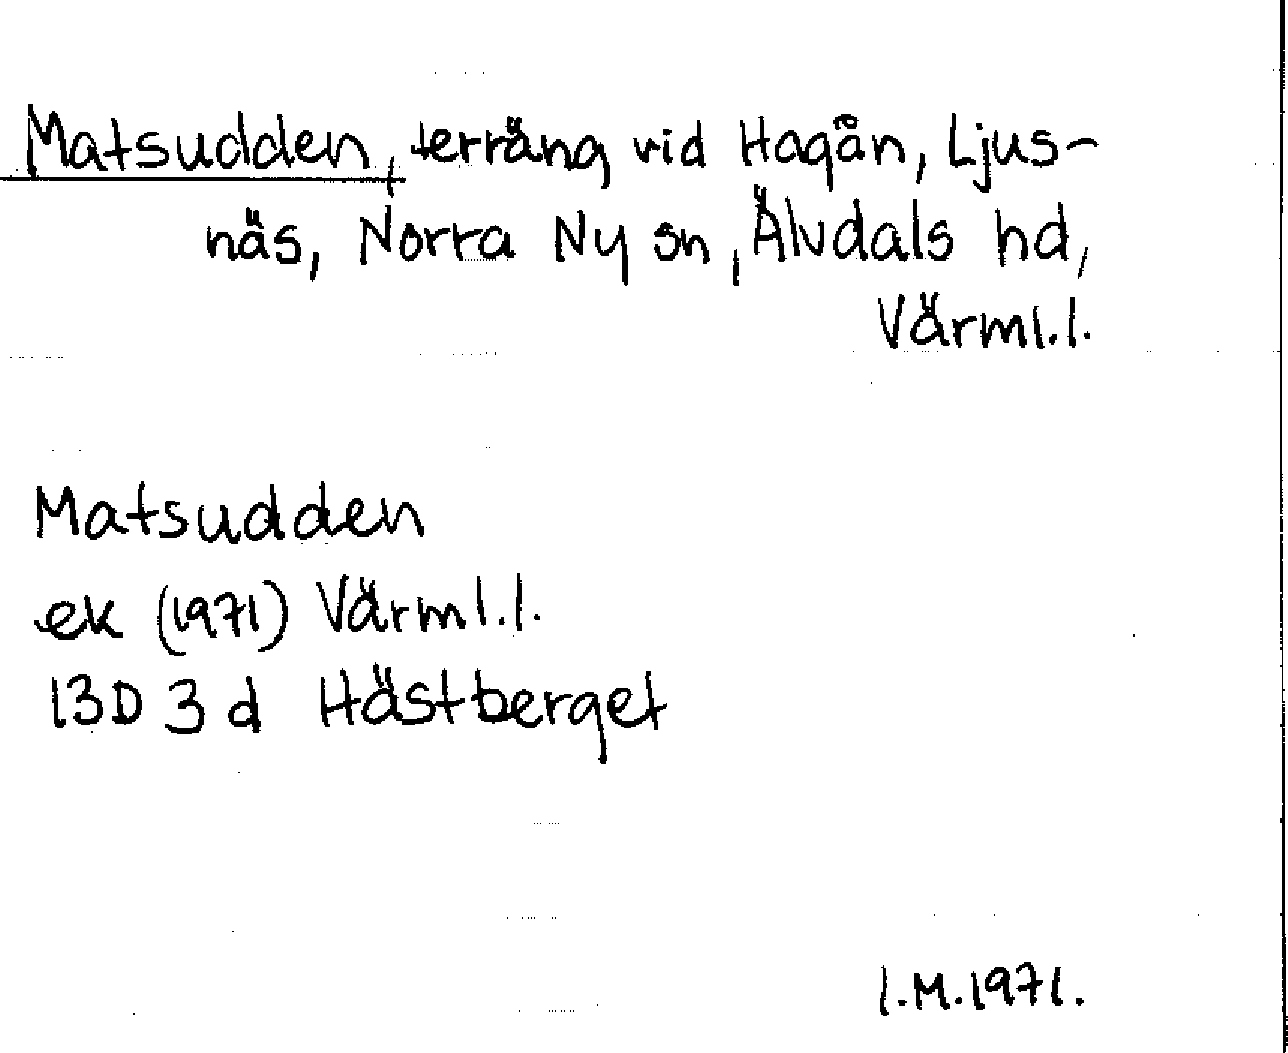 Matsudden, terräng vid Hagån, Ljus-
näs, Norra Ny sn, Älvdals hd,
Värml.l.
Matsudden
ek (1971) Värml.l.
13D 3 d Hästberget
I.M.1971.